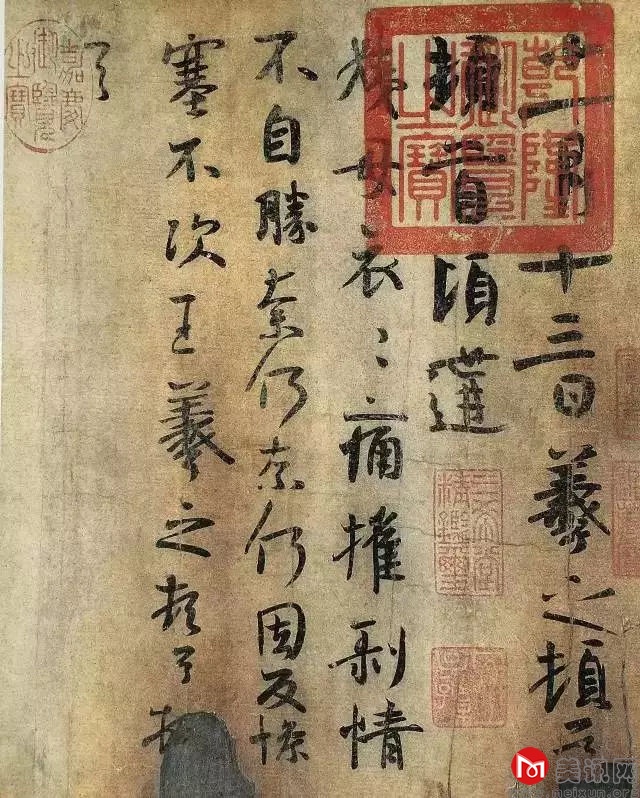 乾隆御覽之寶
十一月十三日羲之頓首
頓首頃遘
姨母哀〻痛摧剝情
不自勝奈何奈何因反慘
塞不次王羲之頓首頓
首
嘉慶御覽之寶
三希堂精鑑璽
美讯网